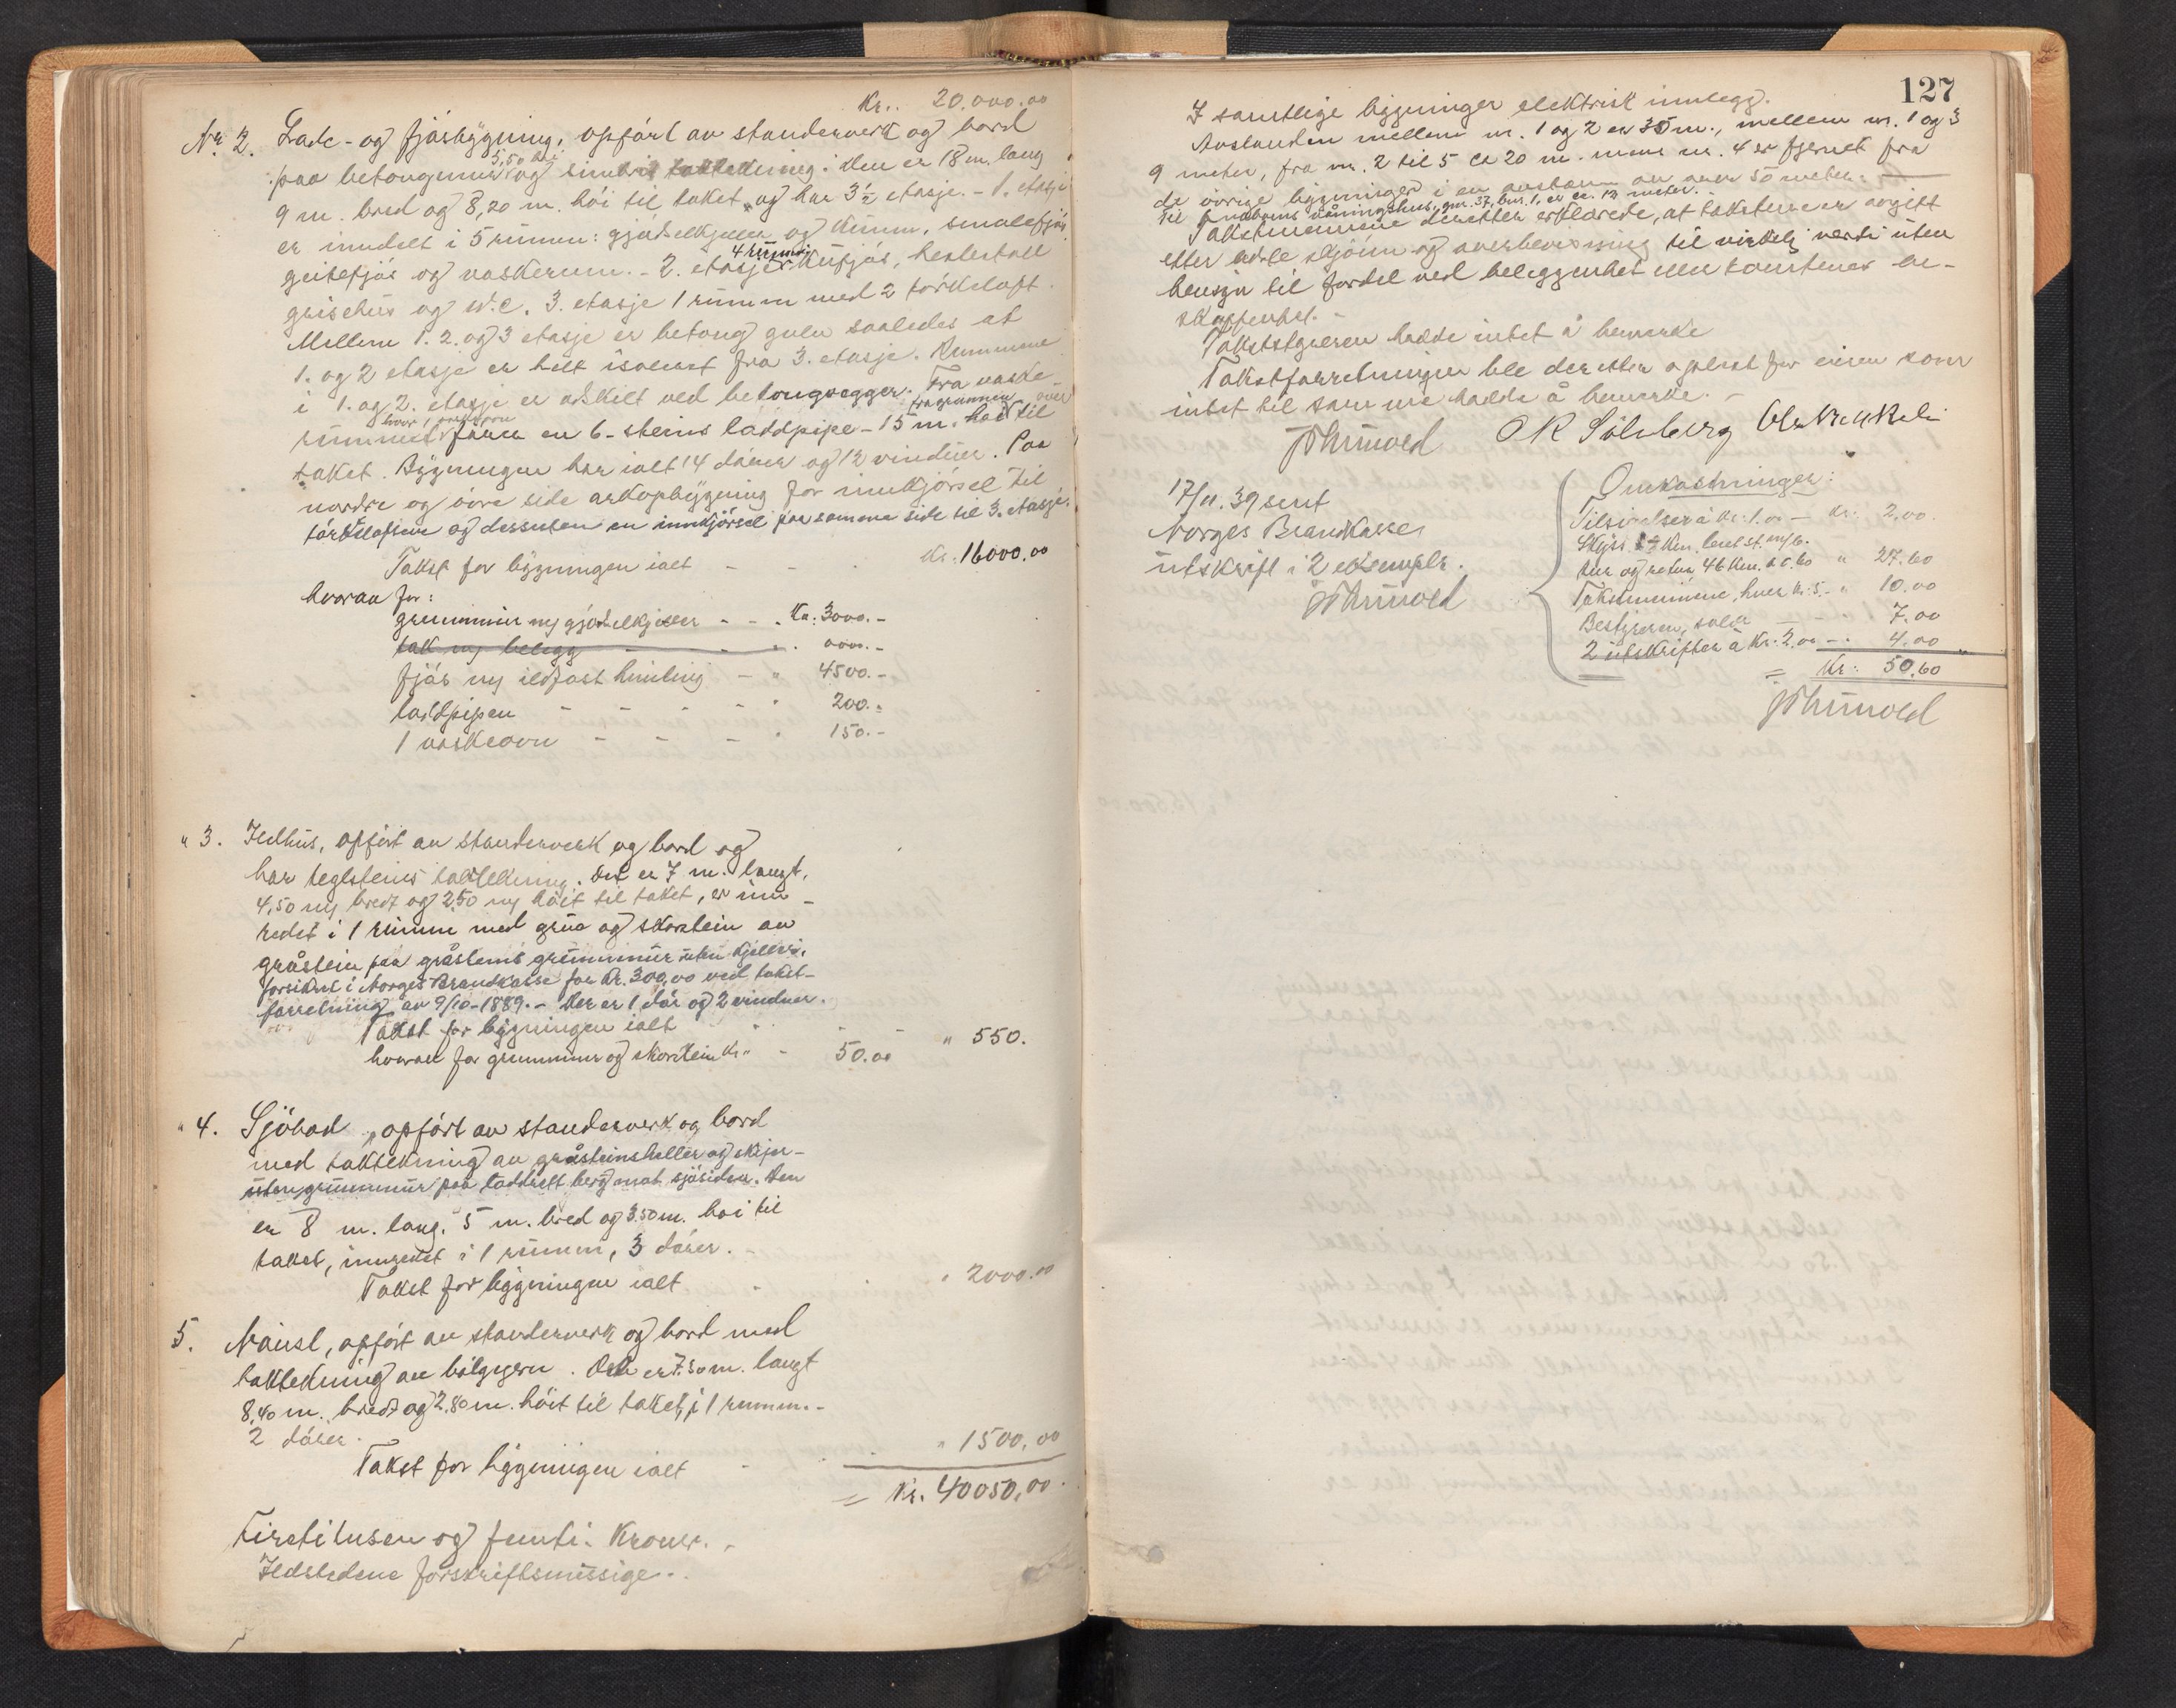 Kr.. 20.000.00
Nr. 2. Lade- og fjósbygning, opfört av standerverk og bord
paa betongmur 3,50 høi og taktekning. Den er 18 m. lang
9 m. bred og 8,20 m. höi til taket, og har 3½ etasje. - 1. etasje
er inndelt i 5 rumm: gjødselkjeller og Kumm, smalefjós
geitefjós og vaskerum. - 2. etasje 4 rumm: Kufjós, hestestall
grisehus og W.C. 3. etasje 1 rumm med 2 törkeloft.
Mellem 1. 2. og 3 etasje er betong gulv saaledes at
1. og 2 etasje er helt isolert fra 3. etasje. Rummene
i 1. og 2. etasje er atskilt ved betongvegger. Fra vaske-
rummet, hvor 1 vaskeovn, förer en 6-steins laddpipe - 15 m. höi fra grunnen til over
taket. Bygningen har ialt 14 dörer og 12 vinduer. Paa
nordre og övre side arkopbygning for innkjörsel til
törkeloftene og dessuten en innkjörsel paa samme side til 3. etasje.
Takst for bygningen ialt - - Kr. 16000.00
hvorav for:
grunnmur m/ gjödselkjeller - - . Kr. 3000.-
tak m/ belegg - - . 000.-
fjós m/ ildfast himling - " 4500.-
laddpipen - - - - " 200.-
1 vaskeovn - - - " 150.-
" 3. Ildhus, opfört av standerverk og bord og
har teglsteins taktekning. Det er 7 m. langt,
4,50 m/ bredt og 2,50 m/ höit til taket, er inn-
redet i 1 rumm med grue og skorstein av
gråstein paa gråsteins grunnmur uten kjeller.
forsikret i Norges Brandkasse for Kr. 300,00 ved takst-
forretning av 9/10-1889. - Der er 1 dör og 2 vinduer.
Takst for bygningen ialt - - " 550.
hvorav for grunnmur og skorstein Kr. - 50.00
" 4. Sjöbod, opfört av standerverk og bord
med taktekning av gråsteinsheller og skifer-
uten grunnmur paa berg mot sjösiden. Den
er 8 m. lang, 5 m. bred og 3.50 m. höi til
taket, innredet i 1 rumm, 3 dörer. -
Takst for bygningen ialt - " 2000.00
5. Naust, opfört av standerverk og bord med
taktekning av bölgejern. Det er 7.50 m. langt
8,40 m. bredt og 2.80 m. höit til taket, i 1 rumm. -
2 dörer.
Takst for bygningen ialt - " 1500,00
= Kr. 40050,00
Firetitusen og femti: Kroner. -
Ildstedene forskriftsmässige. -
127
I samtlige bygninger elektrisk innlegg.
Avstanden mellem nr. 1 og 2 er 35 m., mellem nr. 1 og 3
9 meter, fra nr. 2 til 5 ca 20 m. mens nr. 4 er fjernet fra
de övrige bygninger i en avstand av over 50 meter. -
Til naboens våningshus, gnr. 37, bnr. 1. er ca. 12 meter.
Takstmennene derefter erklærede, at takstene er avgitt
efter beste skjönn og overbevisning til virkelig verdi uten
hensyn til fordel ved beliggenhet eller konstens be-
skaffenhet. -
Takstbestyreren hadde intet å bemerke
Takstforretningen ble deretter oplest for eieren som
intet til samme hadde å bemerke. -
O R Sölvberg
17/11. 39 sent
Norges Brandkasse
utskrift i 2 eksemplr.
Omkostninger:
Tilsigelser à Kr. 1.00 - Kr. 2,00
Skyss Km.
tur og retur 46 Km. à 0.60 " 27.60
Takstmennene, hver Kr. 5.- " 10.00
Bestyreren, salær - - " 7.00
2 utskrifter à Kr. 2.00 - " 4.00
= Kr. 50.60